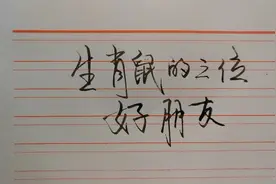 生肖鼠的三位
好朋友